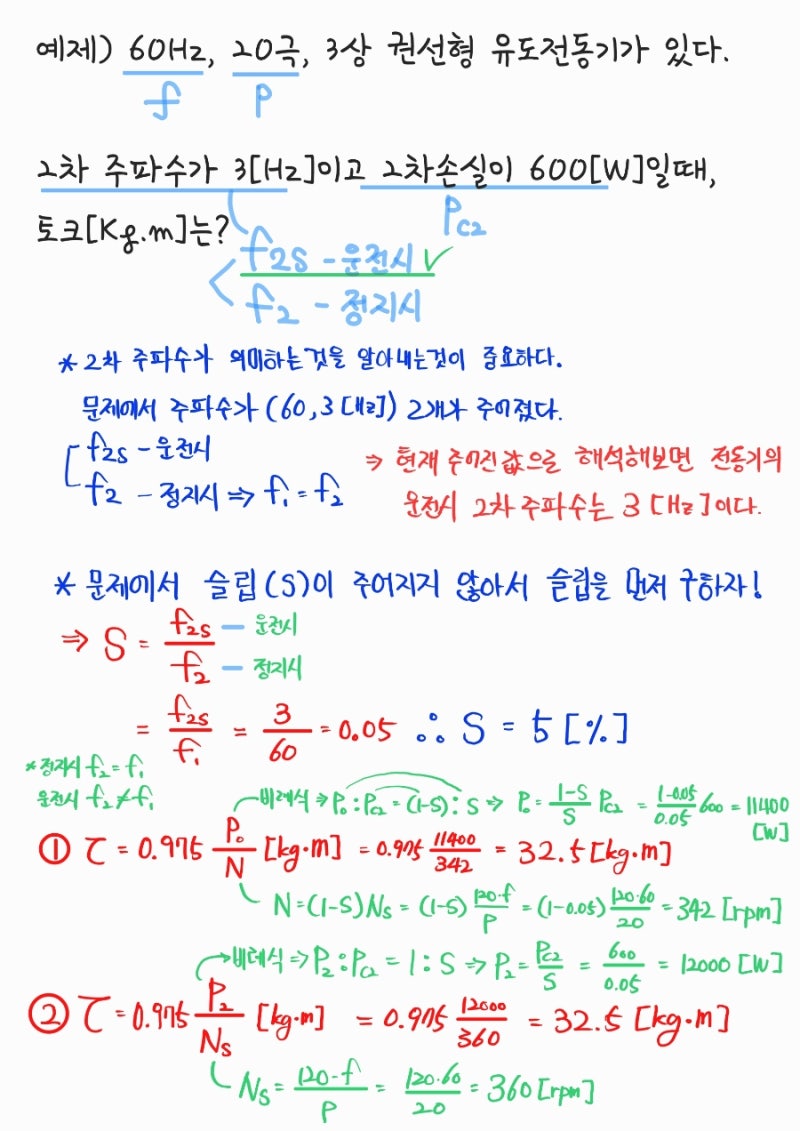 예제) 60Hz, 20극, 3상 권선형 유도전동기가 있다.
f P
2차 주파수가 3[Hz]이고 2차손실이 600[W]일때,
Pc2
토크[Kg.m]는?
f2s - 운전시 ✓
f2 - 정지시
* 2차 주파수가 의미하는것을 알아내는것이 중요하다.
문제에서 주파수가 (60, 3[Hz]) 2개가 주어졌다.
f2s - 운전시
f2 - 정지시 ⇒ f1 = f2
⇒ 현재 주어진 값으로 해석해보면 전동기의
운전시 2차 주파수는 3[Hz]이다.
* 문제에서 슬립(S)이 주어지지 않아서 슬립을 먼저 구하자!
⇒ S = f2s/f2 - 운전시 - 정지시
= f2s/f1 = 3/60 = 0.05 ∴ S = 5[%]
* 정지시 f2 = f1
운전시 f2 ≠ f1
비례식 ⇒ Po : Pc2 = (1-S) : S ⇒ Po = 1-S/S Pc2 = 1-0.05/0.05 600 = 11400 [W]
① τ = 0.975 Po/N [kg·m] = 0.975 11400/342 = 32.5[kg·m]
N = (1-S)Ns = (1-S) 120·f/P = (1-0.05) 120·60/20 = 342 [rpm]
비례식 ⇒ P2 : Pc2 = 1 : S ⇒ P2 = Pc2/S = 600/0.05 = 12000 [W]
② τ = 0.975 P2/Ns [kg·m] = 0.975 12000/360 = 32.5 [kg·m]
Ns = 120·f/P = 120·60/20 = 360[rpm]